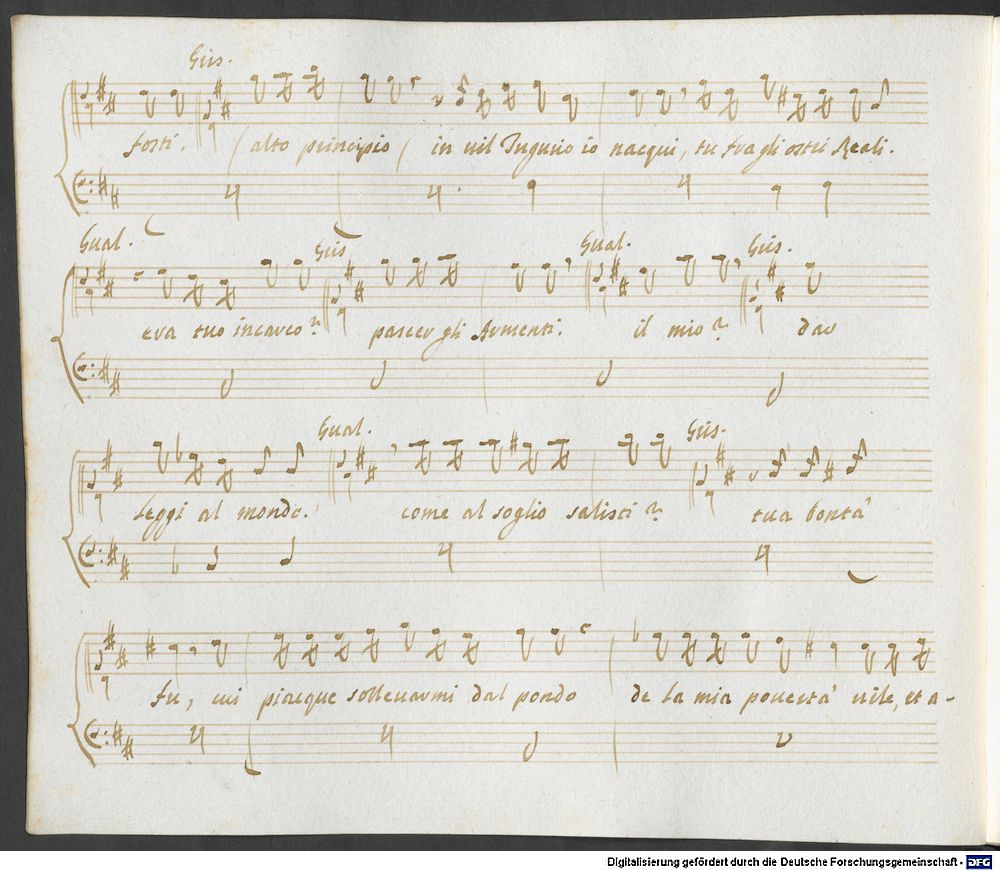 Gris.
fosti. (alto principio( in vil Tugurio io nacqui, tu fra gli ostri Reali.
Gual. Gris Gual. Gris.
era tuo incarco? pascer gli Armenti. il mio? dar
Gual. Gris.
Leggi al mondo. come al soglio salisti? tua bontà
fu, cui piacque sollevarmi dal pondo de la mia povertà vile, et a-
Digitalisierung gefördert durch die Deutsche Forschungsgemeinschaft - DFG